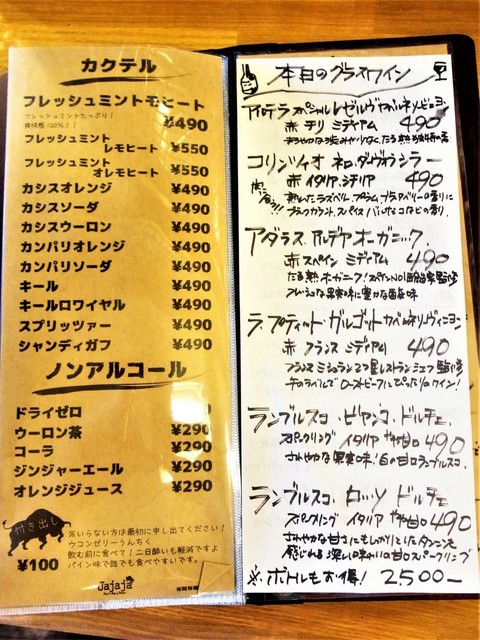 カクテル
フレッシュミントモヒート
フレッシュミントたっぷり!
爽快感100%!! ¥490
フレッシュミント
レモヒート ¥550
フレッシュミント
オレモヒート ¥550
カシスオレンジ ¥490
カシスソーダ ¥490
カシスウーロン ¥490
カンパリオレンジ ¥490
カンパリソーダ ¥490
キール ¥490
キールロワイヤル ¥490
スプリッツァー ¥490
シャンディガフ ¥490
ノンアルコール
ドライゼロ
ウーロン茶 ¥290
コーラ ¥290
ジンジャーエール ¥290
オレンジジュース ¥290
付き出し
¥100
※いらない方は最初に申し出てください!
ウコンゼリーうんちく
飲む前に食べて!二日酔いも軽減ですよ
パイン味で誰でも食べやすいです。
Jajaja
本日のグラスワイン
アルテラ スペシャルレゼルヴァ カベルネソービニヨン
赤 チリ ミディアム 490
コリンツィオ ネロ・ダヴォラ シラー
赤 イタリア シチリア 490
熟したラズベリー、プラム、ブラックベリーの香りに
ブラックカラント、スパイス、バルサミコなどの香り。
アダラス・アルデア オーガニック.
赤 スペイン ミディアム 490
たる熟オーガニック!スペインNO1醸造家監修
フレッシュな果実味に豊かな酸味
ラ・プティット・ガルゴット カベルネソーヴィニヨン
赤 フランス ミディアム 490
フランス ミシュラン2つ星レストラン シェフ監修
牛のラベルで ローストビーフにぴったりのワイン!
ランブルスコ・ビヤンコ・ドルチェ
スパークリング イタリア やや甘口 490
さわやかな果実味!白の甘口ランブルスコ.
ランブルスコ・ロッソ ドルチェ
スパークリング イタリア やや甘口 490
さわやかな甘さにもしっかりとしたタンニンを
感じれる 深い味わいの甘口スパークリング
※ボトルもお得! 2500-